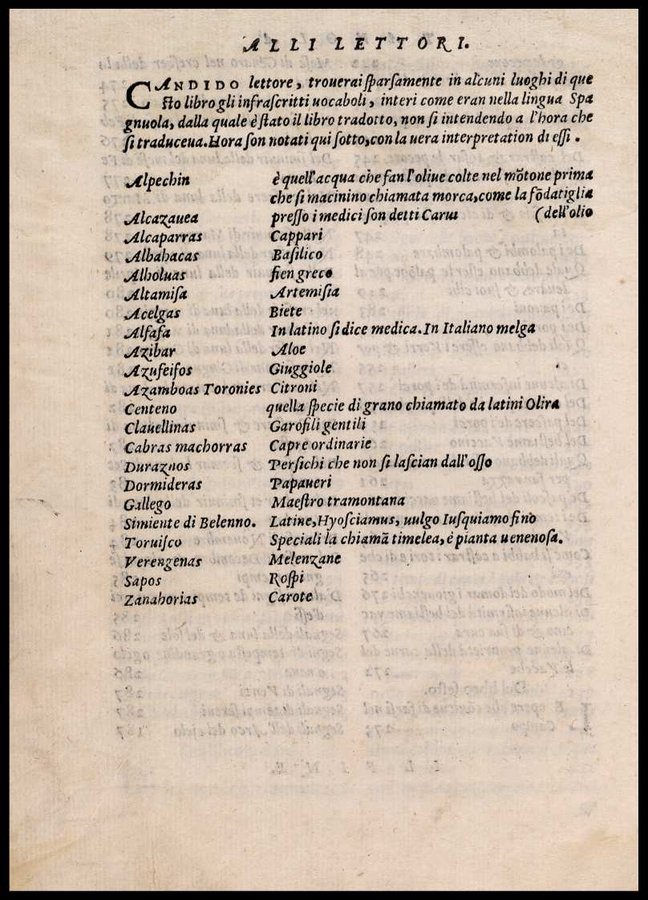 ALLI LETTORI.
CANDIDO lettore, trouerai sparsamente in alcuni luoghi di que
sto libro gli infrascritti uocaboli, interi come eran nella lingua Spa
gnuola, dalla quale è stato il libro tradotto, non si intendendo a l'hora che
si traduceua. Hora son notati qui sotto, con la uera interpretation di essi.
Alpechin è quell'acqua che fan l'oliue colte nel mõtone prima
che si macinino chiamata morca, come la fõdatiglia
Alcazauea presso i medici son detti Carui (dell'olio
Alcaparras Cappari
Albahacas Basilico
Alholuas fien greco
Altamisa Artemisia
Acelgas Biete
Alfafa In latino si dice medica. In Italiano melga
Azibar Aloe
Azufeifos Giuggiole
Azamboas Toronies Citroni
Centeno quella specie di grano chiamato da latini Olira
Clauellinas Garofili gentili
Cabras machorras Capre ordinarie
Duraznos Persichi che non si lascian dall'osso
Dormideras Papaueri
Gallego Maestro tramontana
Simiente di Belenno. Latine, Hyosciamus, uulgo Iusquiamo fino
Toruisco Speciali la chiamã timelea, è pianta uenenosa.
Verengenas Melenzane
Sapos Rospi
Zanahorias Carote